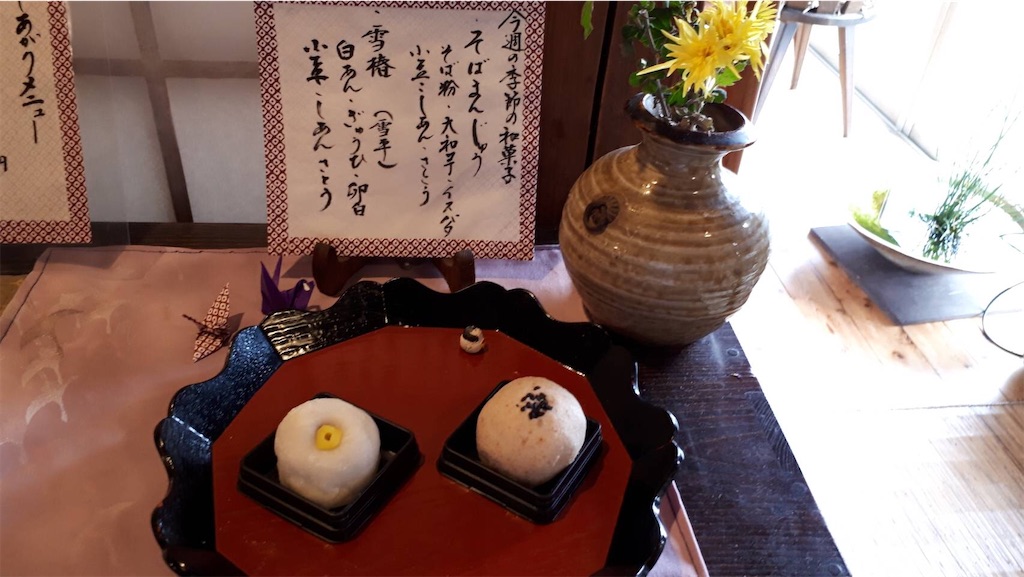 今週の季節の和菓子
・そばまんじゅう
そば粉・大和芋・イスパタ
小豆こしあん・さとう
・雪椿(雪平)
白あん・ぎゅうひ・卵白
小菜・しあんさとう
しあがりメニュー
円